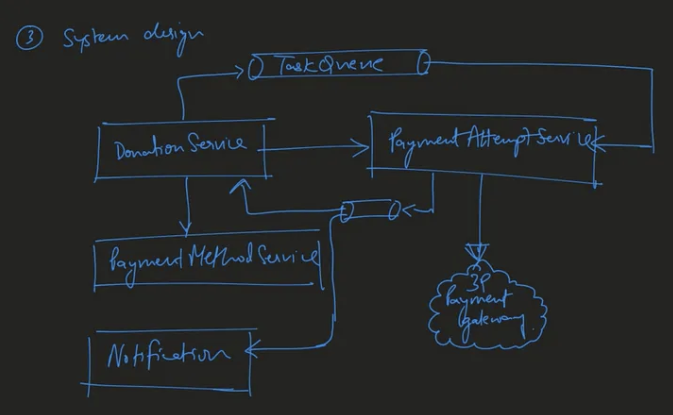 ③ System design
TaskQueue
DonationService
Payment Attempt Service
Payment Method Service
3P
Payment
Gateway
Notification